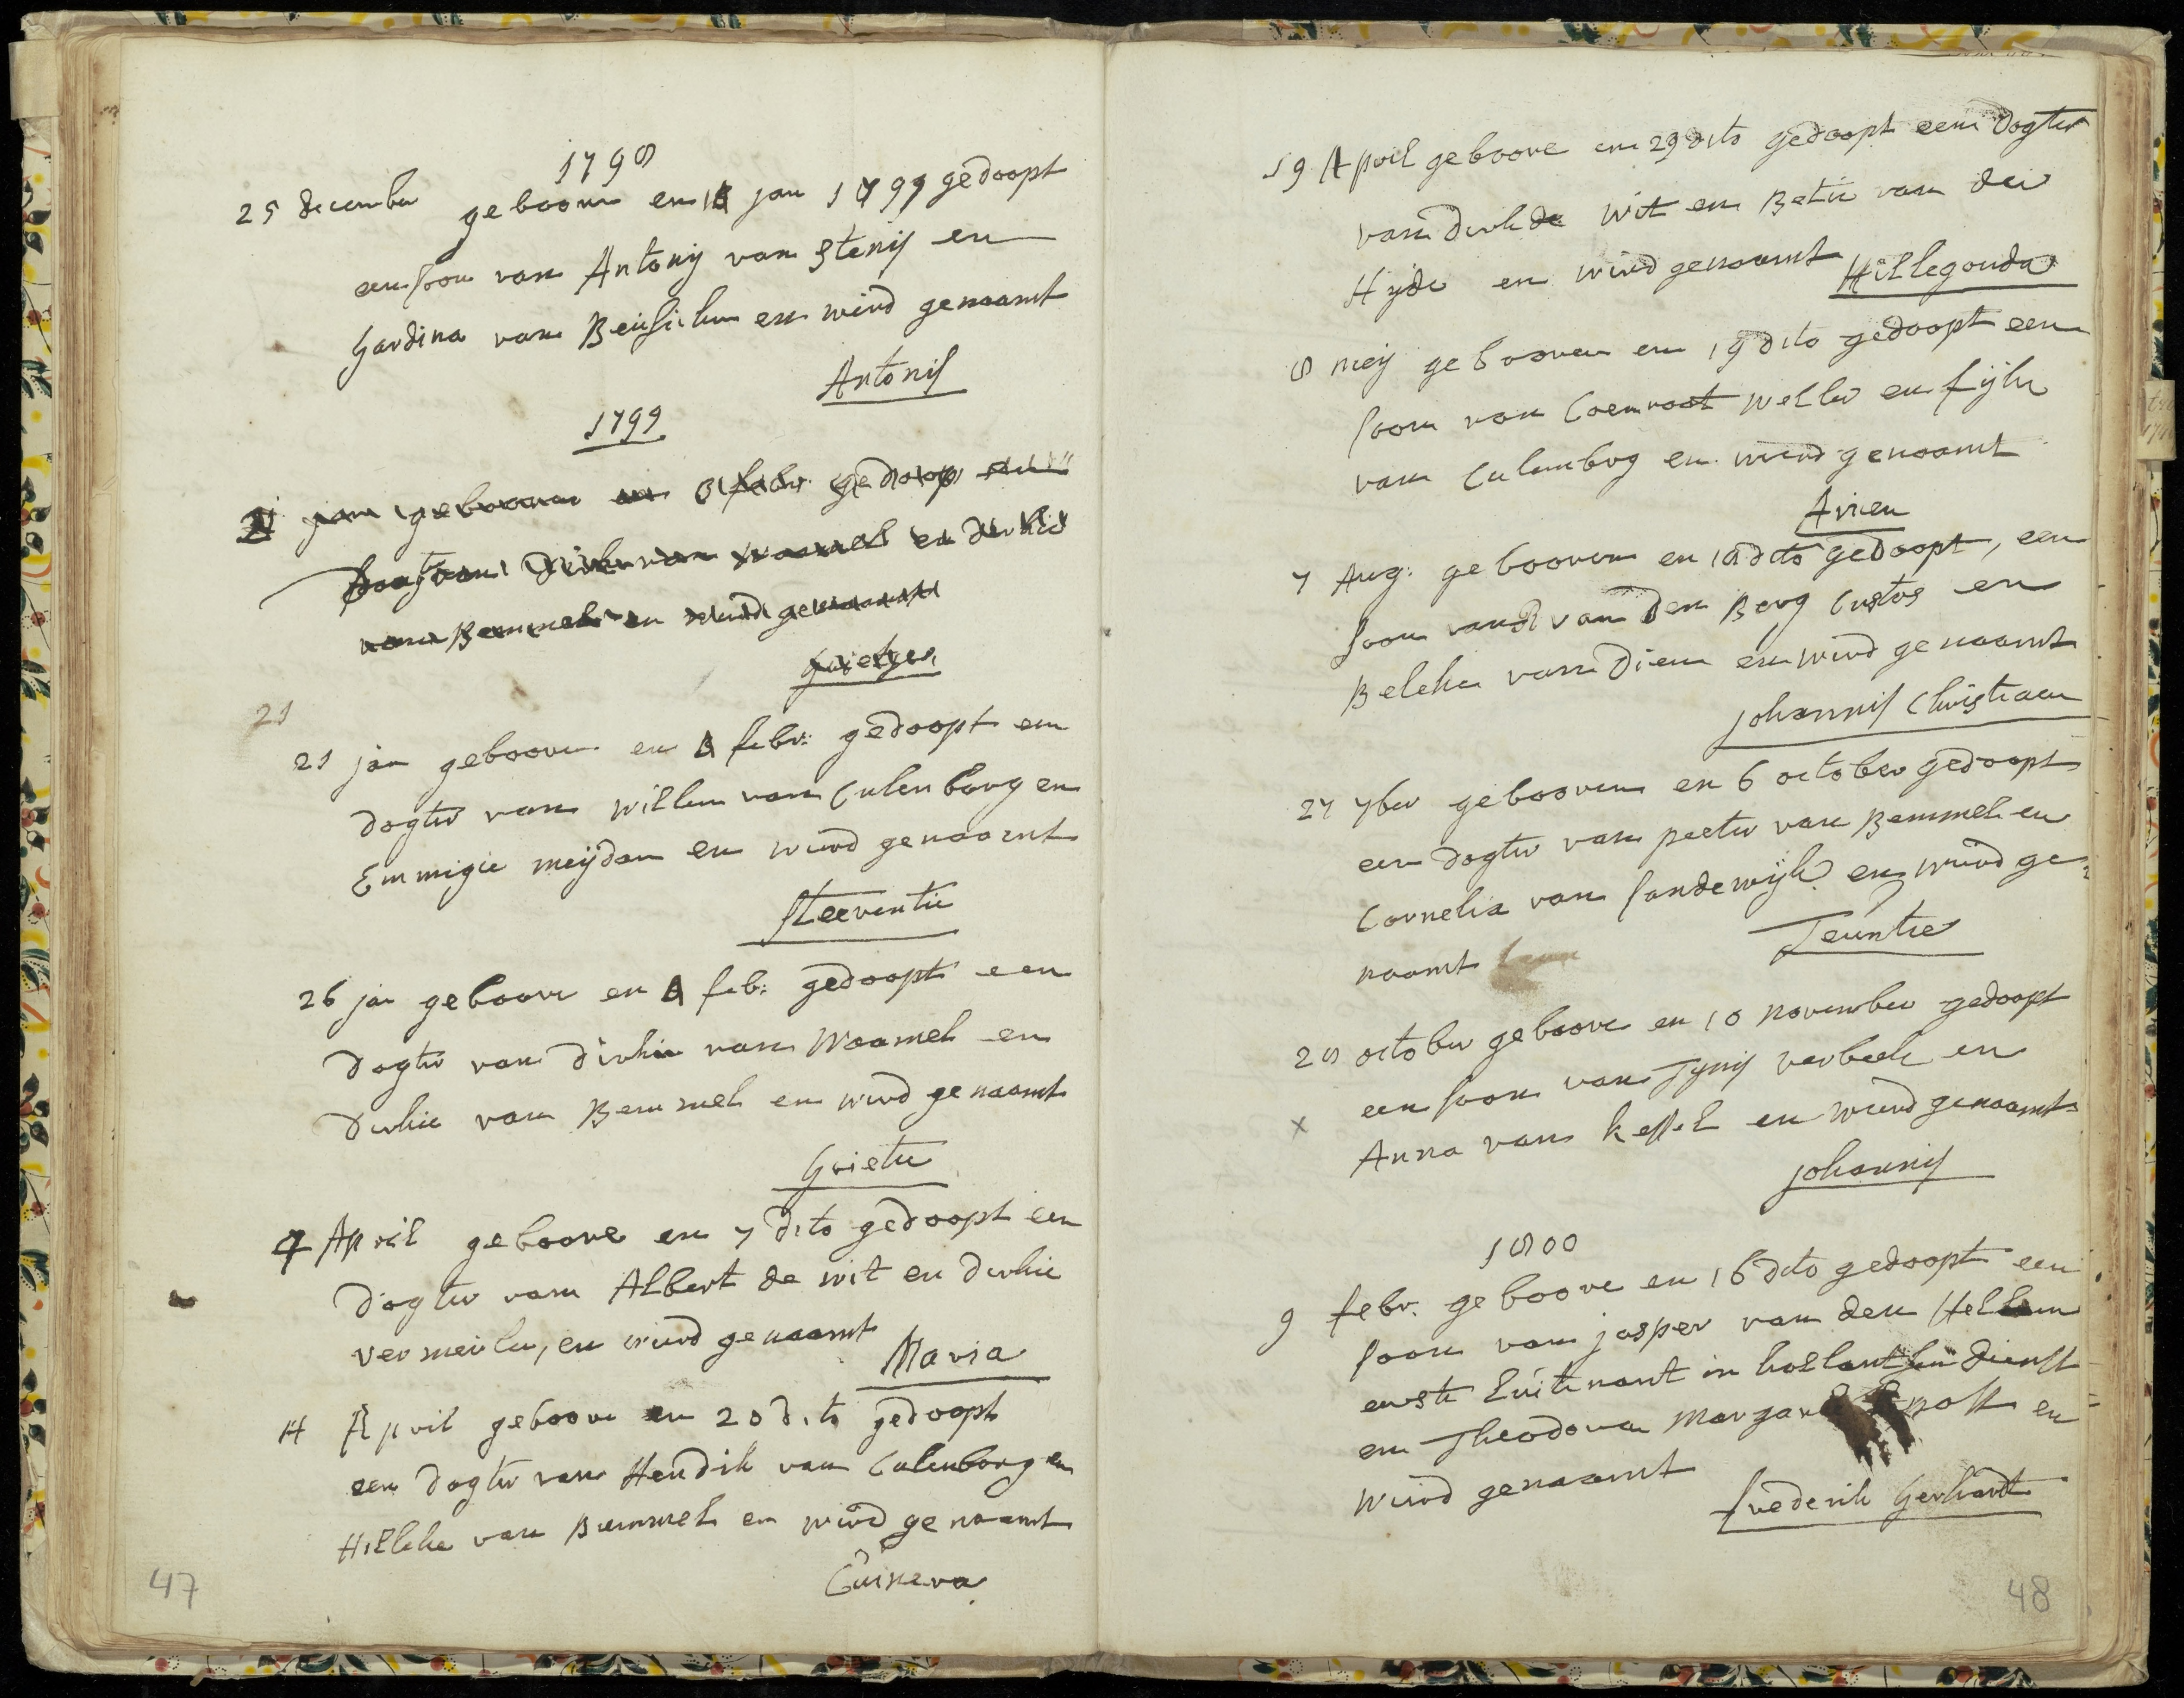 1798
25 december geboore en 18 jan 1799 gedoopt
een soon van Antonij van Stenis en
Gardina van Beusichem en wierd genaamt
Antonis
1799
21 jan geboorn en febr: gedoop een
van Bemmel en wierd genaamt
Grietges
21
21 jan geboore en febr: gedoopt een
dogter van willem van Culenborg en
Emmigie meijdam en wierd genaamt
Steeventie
26 jan geboore en feb: gedoopt een
dogter van dirkie van Waamel en
dirkie van Bemmel en wierd genaamt
Grietie
7 April geboore en 7 dito gedoopt een
dogter van Albert de wit en dirkie
vermeulen, en wierd genaamt
Maria
14 April geboore en 20 dito gedoopt
een dogter van Hendrik van Culenborg en
Hilleke van Bemmel en wierd genaamt
47
19 April geboore en 29 dito gedoopt een dogter
van dirk de wit en Betie van der
Hijde en wierd genaamt
Hillegonda
8 meij gebooren en 19 dito gedoopt een
soon van Coenraat weller en fijke
van Culemborg en wierd genaamt
Arien
7 Aug: gebooren en 18 dito gedoopt, een
soon van van den Berg Custos en
Beleke van Diem en wierd genaamt
Johannis Christiaan
27 7ber gebooren en 6 october gedoopt
een dogter van peeter van Bemmel en
Cornelia van Sandewijk en wierd ge=
naamt
Teuntie
28 october geboore en 10 november gedoopt
een soon van Tijnis verbeek en
x
Anna van kessel en wierd genaamt
Johannis
1800
9 febr. geboore en 16 dito gedoopt een
soon van jasper van den Hellem
eerste Luitenant in dienst
en Theodora en
wierd genaamt
frederik Gerhardt
48